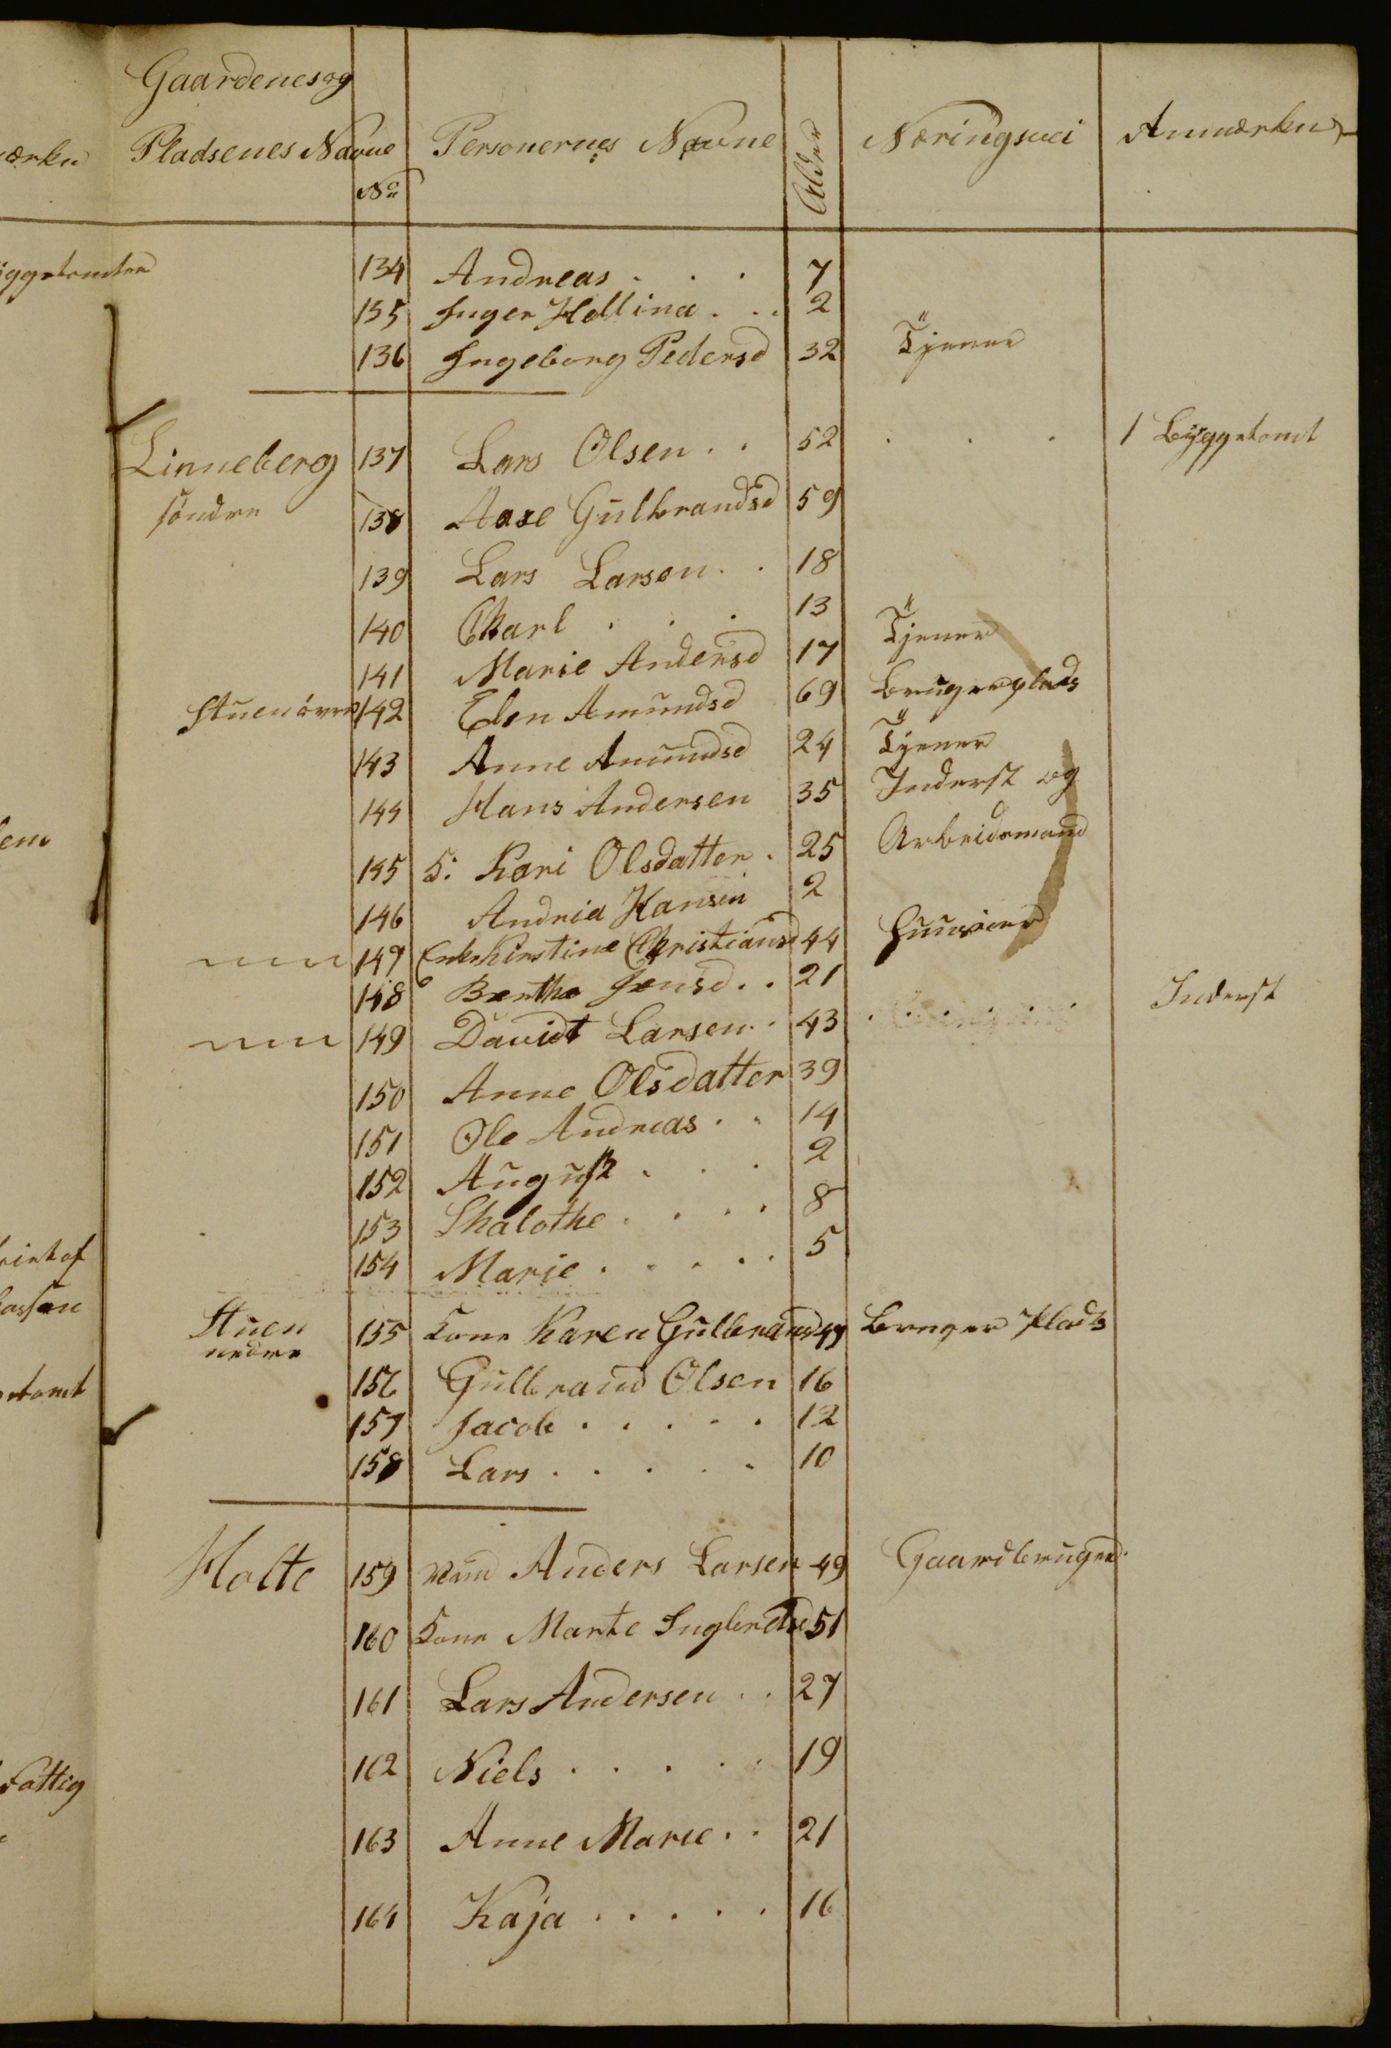 Gaardenes og
Pladsenes Navne No Personernes Navne Alder Næringsvei Anmærkn
ærkn
yggetomter
134 Andreas . . . 7
135 Inger Hellina . . . 2
136 Ingeborg Pedersd 32 Tjener
Linneberg 137 Lars Olsen . . 52 . . . 1 Byggetomt
söndre 138 Aase Gulbrandsd 59
139 Lars Larsen . . 18
140 Charl . . . 13
141 Marie Andersd 17 Tjener
Stuen övre 142 Elen Amundsd 69 Bruger plads
143 Anne Amundsd 24 Tjener
144 Hans Andersen 35 Inderst og
145 K: Kari Olsdatter . 25 Arbeidsmand
146 Andrea Hansen 2
147 Enke Kirstine Christiansd 44 Huusleie
148 Berthe Jensd . . 21
149 Davidt Larsen . . 43 . . . . . Inderst
150 Anne Olsdatter 39
151 Ole Andreas . . 14
152 August . . . 2
153 Shalothe . . . . 8
154 Marie . . . . . 5
Stuen 155 Kone Karen Gulbrandsd 49 Bruger Plads
nedre
156 Gulbrand Olsen 16
157 Jacob . . . . . 12
158 Lars . . . . . 10
Holte 159 Mand Anders Larsen 49 Gaardbruger
160 Kone Marte Englbretsd 51
161 Lars Andersen . . 27
162 Niels . . . . . 19
163 Anne Marie . . 21
164 Kaja . . . . . 16
etomt
Fattig